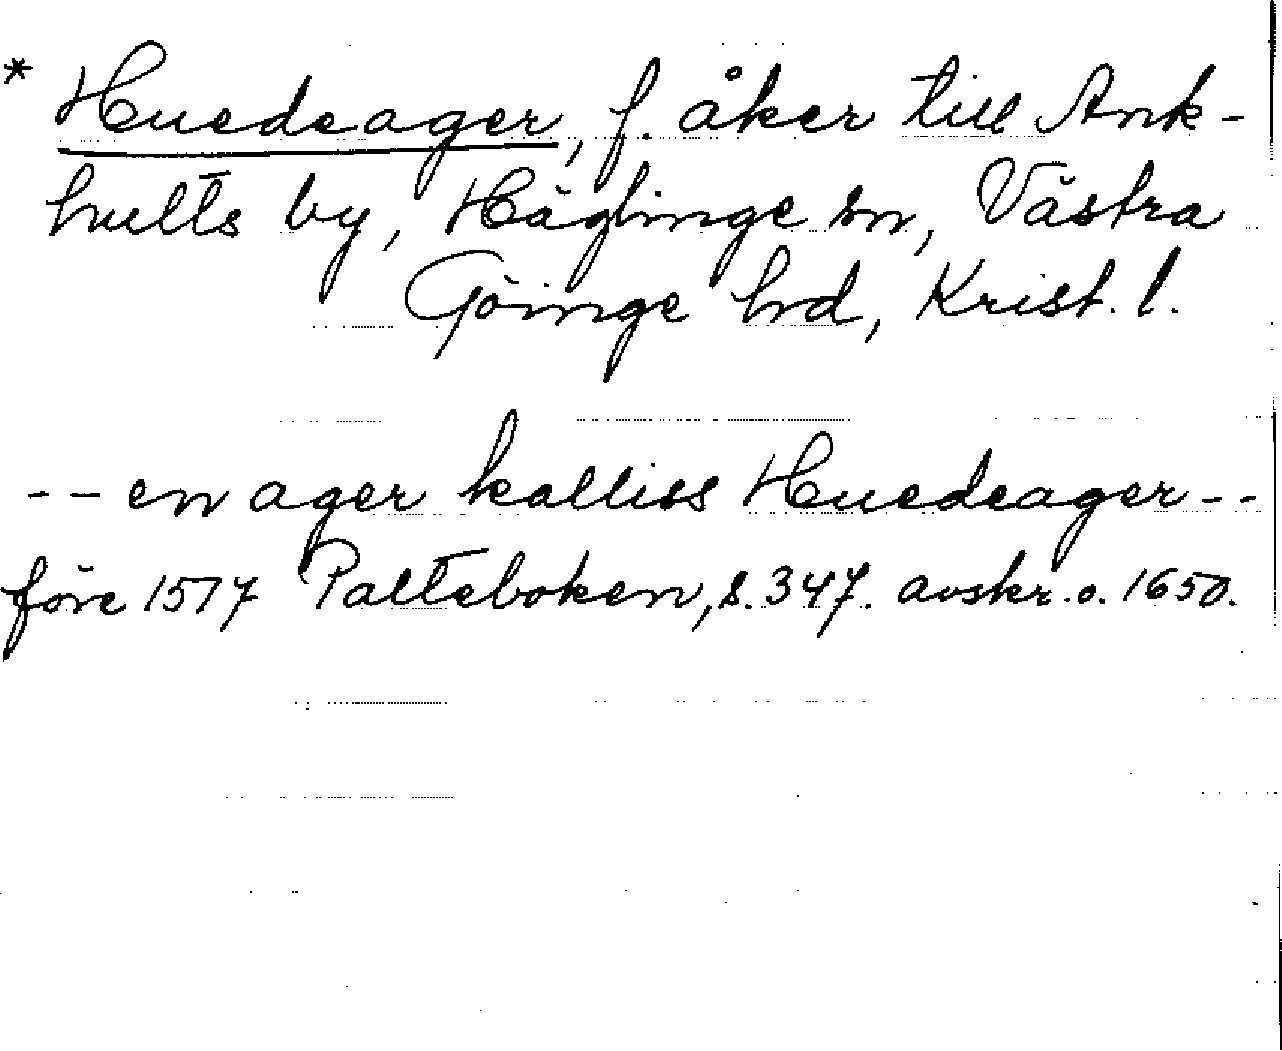 * Huedeager, f. åker till Ank-
hults by, Häglinge sn, Västra
Göinge hrd, Krist. l.
-- en ager kalliss Huedeager --
före 1517 Palteboken, s. 347. avskr. o. 1650.